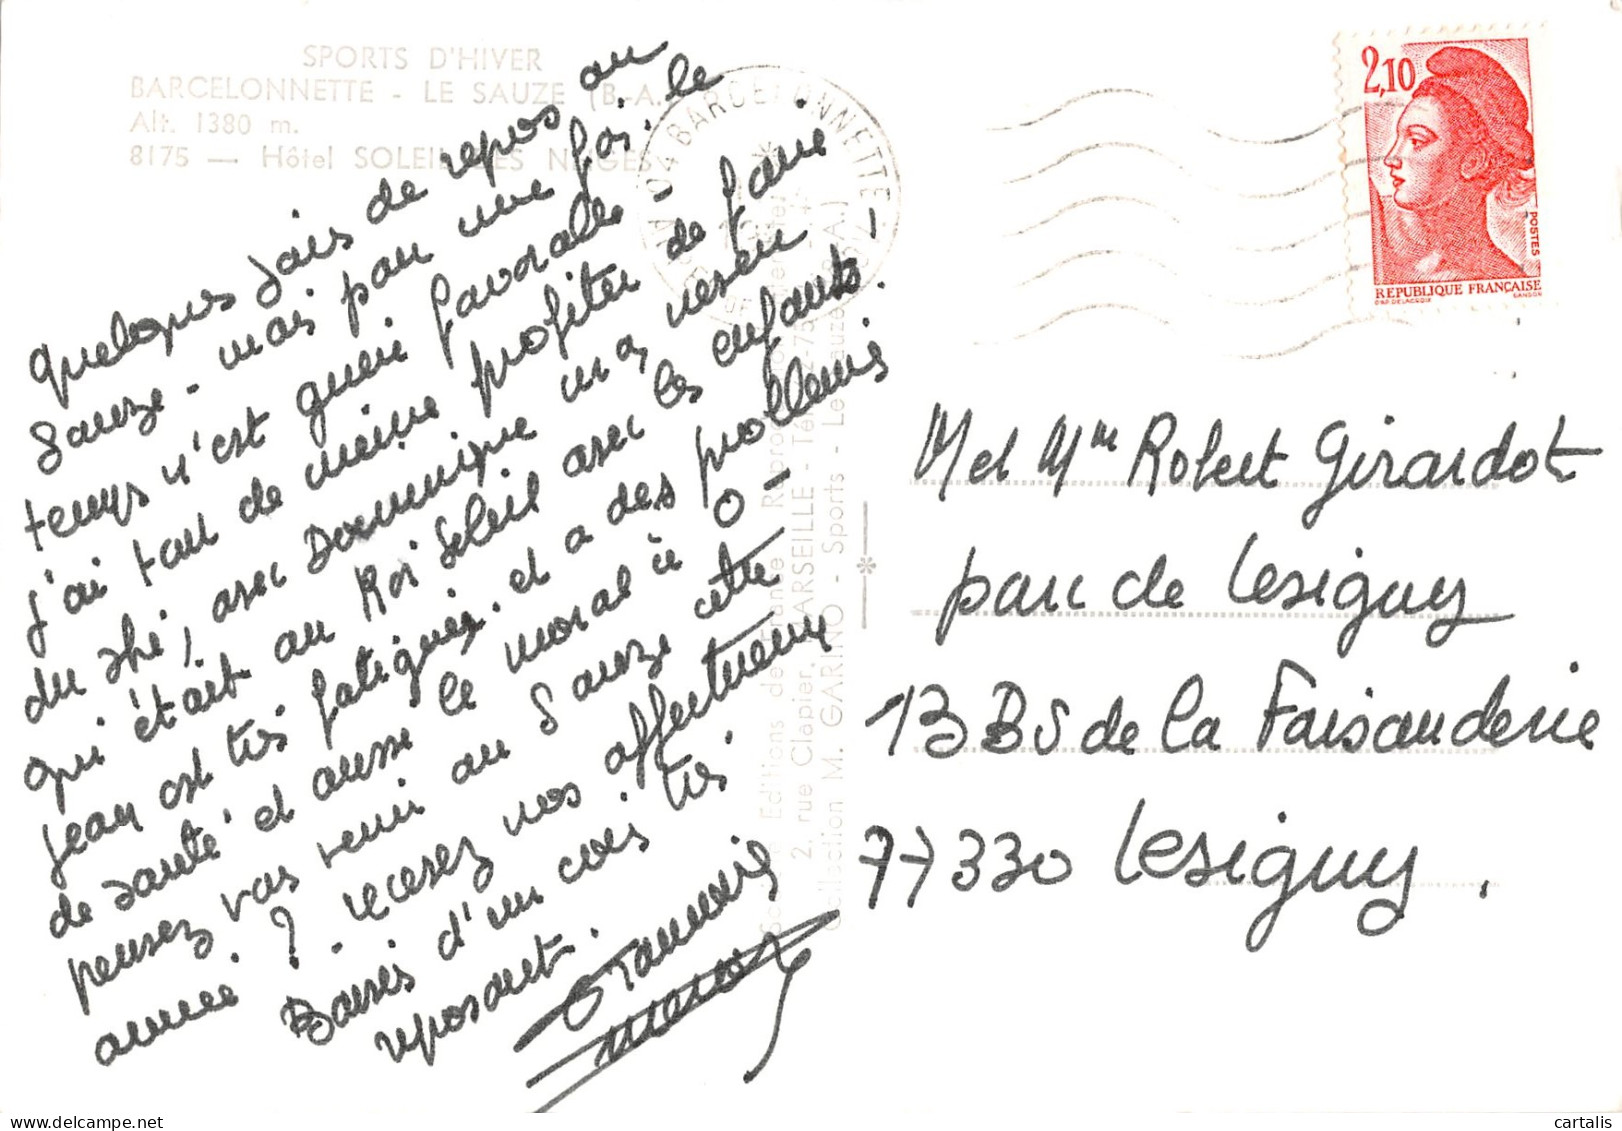 SPORTS D'HIVER
BARCELONNETTE - LE SAUZE (B.-A.)
Alt. 1380 m.
8175 — Hôtel SOLEIL DES NEIGES
Quelques jours de repos au
Sauze - mais pour une fois le
temps n'est guère favorable -
j'ai tout de même profiter de faire
du ski, avec Dominique
qui était au Roi Soleil avec les enfants -
Jean est très fatiguée. et a des problèmes
de santé et aussi le moral à 0 -
pensez vous venir au Sauze cette
année ? - recevez nos affectueux
Baisers d'un coin très
reposant.
04 BARCELONNETTE
Editions de France - Reproduction
2, rue Clapier, MARSEILLE - Tél.
Collection M. GARINO - Sports - Le Sauze (B.-A.)
2,10
POSTES
REPUBLIQUE FRANÇAISE
D'AP. DELACROIX GANDON
M et Mme Robert Girardot
parc de Lesigny
13 Bd de la Faisanderie
77330 Lesigny.
cartalis
delcampe.net